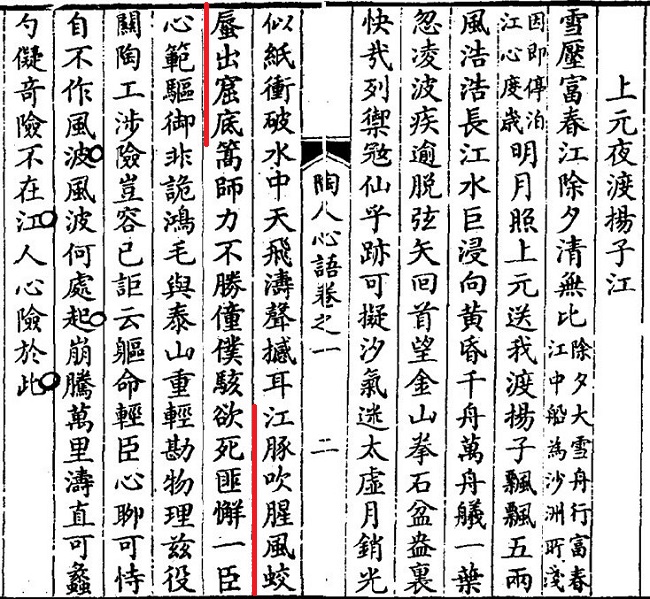 上元夜渡揚子江
雪壓富春江除夕清無比
除夕大雪舟行富春
江中船為沙洲所淺
因即停泊
江心度歲
明月照上元送我渡揚子飄飄五兩
風浩浩長江水巨浸向黃昏千舟萬舟艤一葉
忽凌波疾逾脫弦矢回首望金山拳石盆盎裏
快哉列禦寇仙乎跡可擬汐氣迷太虛月銷光
陶人心語卷之一 二
似紙衝破水中天飛濤聲撼耳江豚吹腥風蛟
蜃出窟底篙師力不勝僮僕駭欲死匪懈一臣
心範驅御非詭鴻毛與泰山重輕勘物理茲役
關陶工涉險豈容已詎云軀命輕臣心聊可恃
自不作風波風波何處起崩騰萬里濤直可蠡
勺儗奇險不在江人心險於此